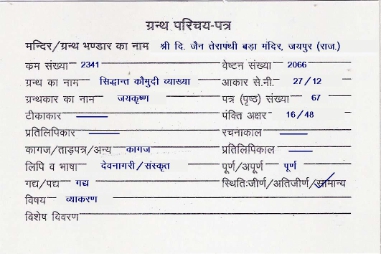 ग्रन्थ परिचय-पत्र
मन्दिर/ग्रन्थ भण्डार का नाम श्री दि. जैन तेरापंथी बड़ा मंदिर, जयपुर (राज.)
क्रम संख्या 2341 वेष्टन संख्या 2066
ग्रन्थ का नाम सिद्धान्त कौमुदी व्याख्या आकार से.मी. 27/12
ग्रन्थकार का नाम जयकृष्ण पत्र (पृष्ठ) संख्या 67
टीकाकार पंक्ति अक्षर 16/48
प्रतिलिपिकार रचनाकाल
कागज/ताड़पत्र/अन्य कागज प्रतिलिपिकाल
लिपि व भाषा देवनागरी/संस्कृत पूर्ण/अपूर्ण पूर्ण
गद्य/पद्य गद्य स्थिति:जीर्ण/अतिजीर्ण/सामान्य
विषय व्याकरण
विशेष विवरण